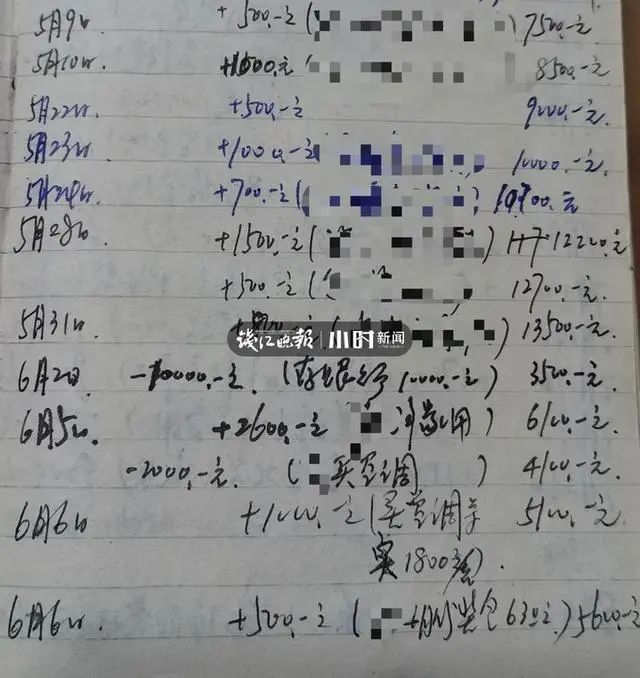 5月9日. +500.-元( 7500.-元
5月10日. +1000.元( 8500.-元
5月22日 +500.-元 9000.-元.
5月23日 +1000.-元 10000.-元.
5月24日. +700.-元( 10700.元
5月28日 +1500.-元( ) 12200.元
+500.-元( 12700.-元
5月31日. ) 13500.-元.
钱江晚报 小时新闻
6月2日 -10000.-元. (存银行10000.-元) 3500.-元.
6月5日. +2600.-元 用) 6100.-元.
-2000.-元. ( 买空调 ) 4100.-元.
6月6日 +1000.-元(买空调 5100.-元
实1800元).
6月6日. +500.-元( 630元) 5600.-元